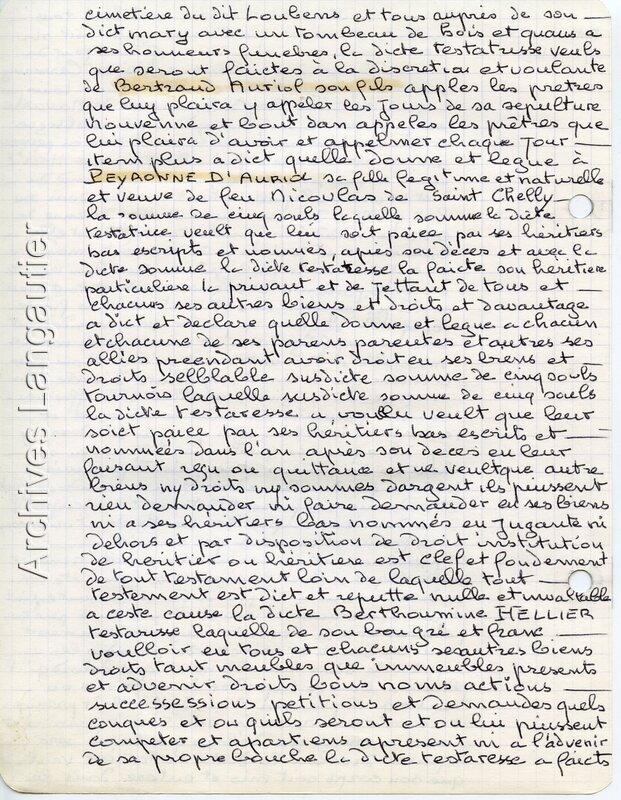 cimetière du dit Loubens et tous auprès de son
dict mary avec un tombeau de bois et quans a
ses honneurs funebres, la dicte testatrisse veult
que seront faictes à la discretion et voulante
de Bertrand Auriol son fils apples les pretres
que luy plaira y appéler les jours de sa sepulture
nouvenne et bout dan appeles les prêtres que
lui plaira d'avoir et appelmer chaque jour
item plus a dict quelle donne et legue à
PEYRONNE D'AURIOL sa fille legitime et naturelle
et veuve de feu Nicoulas de Saint Chelly
la somme de cinq souls laquelle somme la dicte
testatrice veult que leu soit paiée par ses héritiers
bas escripts et nommés, après son déces et avec la
dicte somme la dicte testatresse la faicte son héritière
particulière la privant et de jettant de tous et
chacuns ses autres biens et droits et davantage
a dict et declare quelle donne et legue a chacun
et chacune de ses parens parentes et autres ses
alliés preendant avoir droit en ses biens et
droits, selblable susdicte somme de cinq souls
tournois laquelle susdicte somme de cinq souls
la dicte testaresse a voulu veult que leur
soict paiée par ses héritiers bas escrits et
nommées dans l'an après son deces en leur
faisant reçu ou quittance et ne veult que autre
biens ny droits ny sommes dargent ils piussent
rien demander ni faire demander en ses biens
ni a ses héritiers bas nommés en jugante ni
dehors et par disposition de droit institution
de héritier ou héritière est clef et fondement
de tout testament loin de laquelle tout
testement est dict et reputte nulle et invallable
a ceste cause la dicte Berthoumine HELLIER
testarisse laquelle de son bon gré et franc
voulloir en tous et chacuns ses autres biens
droits tant meubles que immeubles presents
et advenir droits bous noms actions
successessions petitions et demandes quels
conques et ou quils seront et ou lui piussent
competer et apartiens apresent ni a l'advenir
de sa propre bouche la dicte testaresse a faicts
Archives Langautier